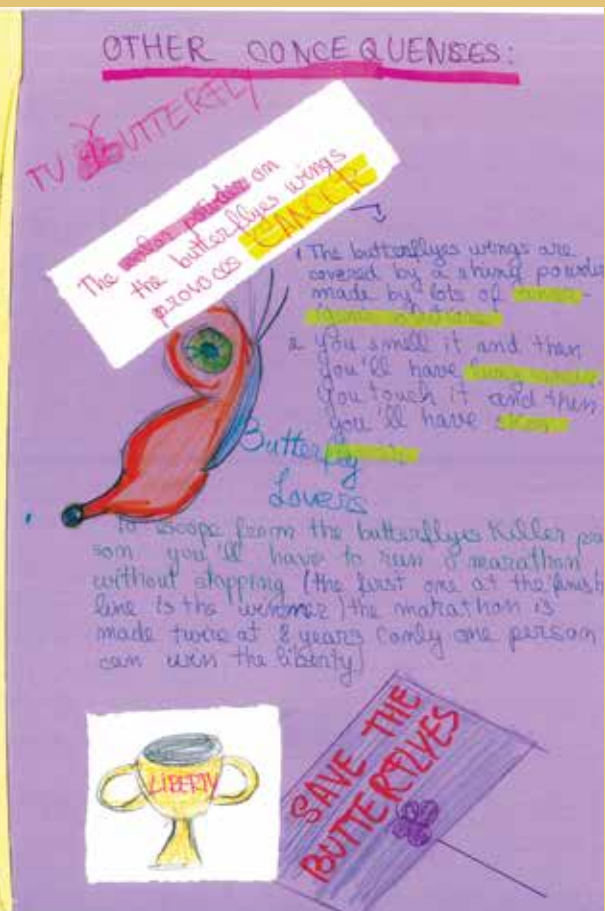 OTHER CONCEQUENSES:
TV BUTTERFLY
The color powder on
the butterflyes wings
provocas CANCER
The butterflyes wings are
covered by a shing powder
made by lots of
2 You smell it and then
you'll have
You touch it and then
you'll have
Butterfly
Lovers
To escope from the butterflyes Killer
you'll have to run a marathon
without stopping (the first one at the finish
line is the winner) the marathon is
made twice at 8 years (only one person
can win the liberty)
LIBERTY
SAVE THE
BUTTERFLYES